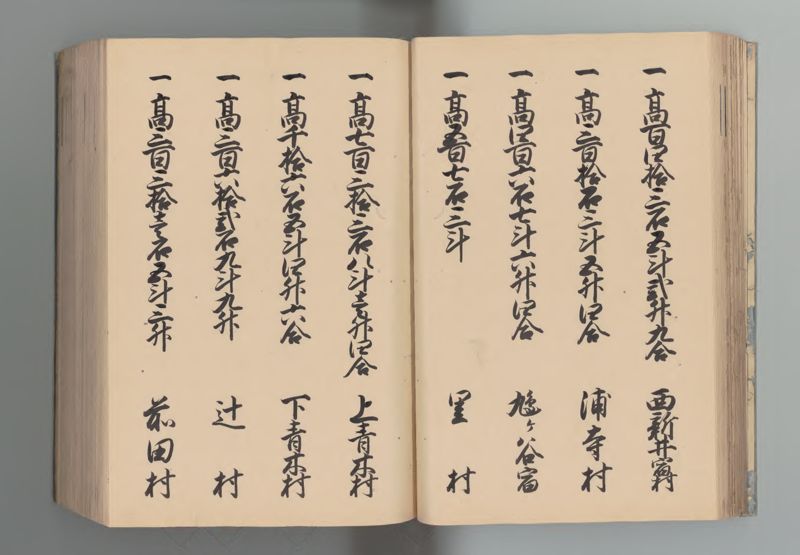 一高百四拾三石五斗弐升九合 西新井宿村
一高三百拾石三斗五升四合 浦寺村
一高四百六石七斗六升四合 鳩ヶ谷宿
一高五百七石三斗 里村
一高七百三拾三石八斗壱升四合 上青木村
一高千拾六石五斗四升六合 下青木村
一高三百六拾弐石九斗九升 辻村
一高三百三拾壱石五斗三升 前田村